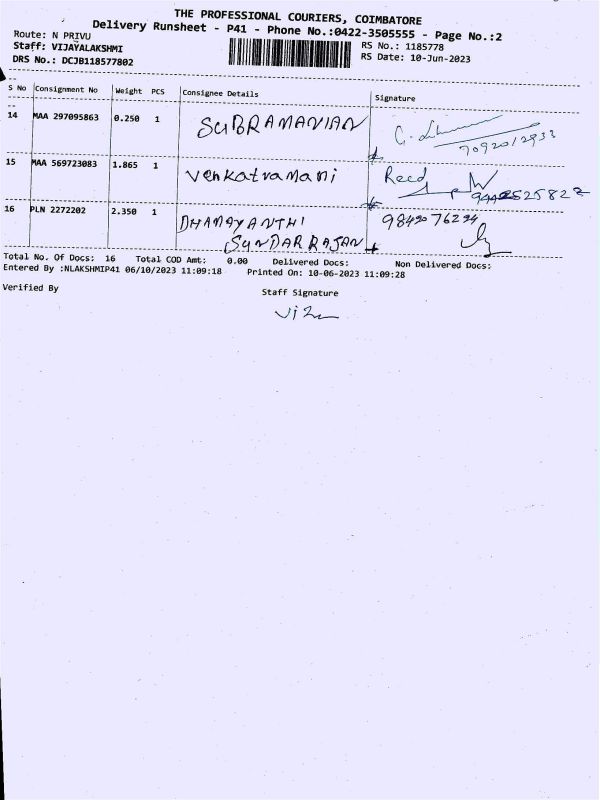 THE PROFESSIONAL COURIERS, COIMBATORE
Delivery Runsheet - P41 - Phone No.:0422-3505555 - Page No.:2
Route: N PRIVU
RS No.: 1185778
Staff: VIJAYALAKSHMI
RS Date: 10-Jun-2023
DRS No.: DCJB118577802
S No Consignment No Weight PCS Consignee Details Signature
14 MAA 297095863 0.250 1 SUBRAMANIAN
7092012933
15 MAA 569723083 1.865 1 Venkatramani Recd
16 PLN 2272202 2.350 1 DHAMAYANTHI
SUNDARRAJAN
Total No. Of Docs: 16 Total COD Amt: 0.00 Delivered Docs: Non Delivered Docs:
Entered By :NLAKSHMIP41 06/10/2023 11:09:18 Printed On: 10-06-2023 11:09:28
Verified By Staff Signature